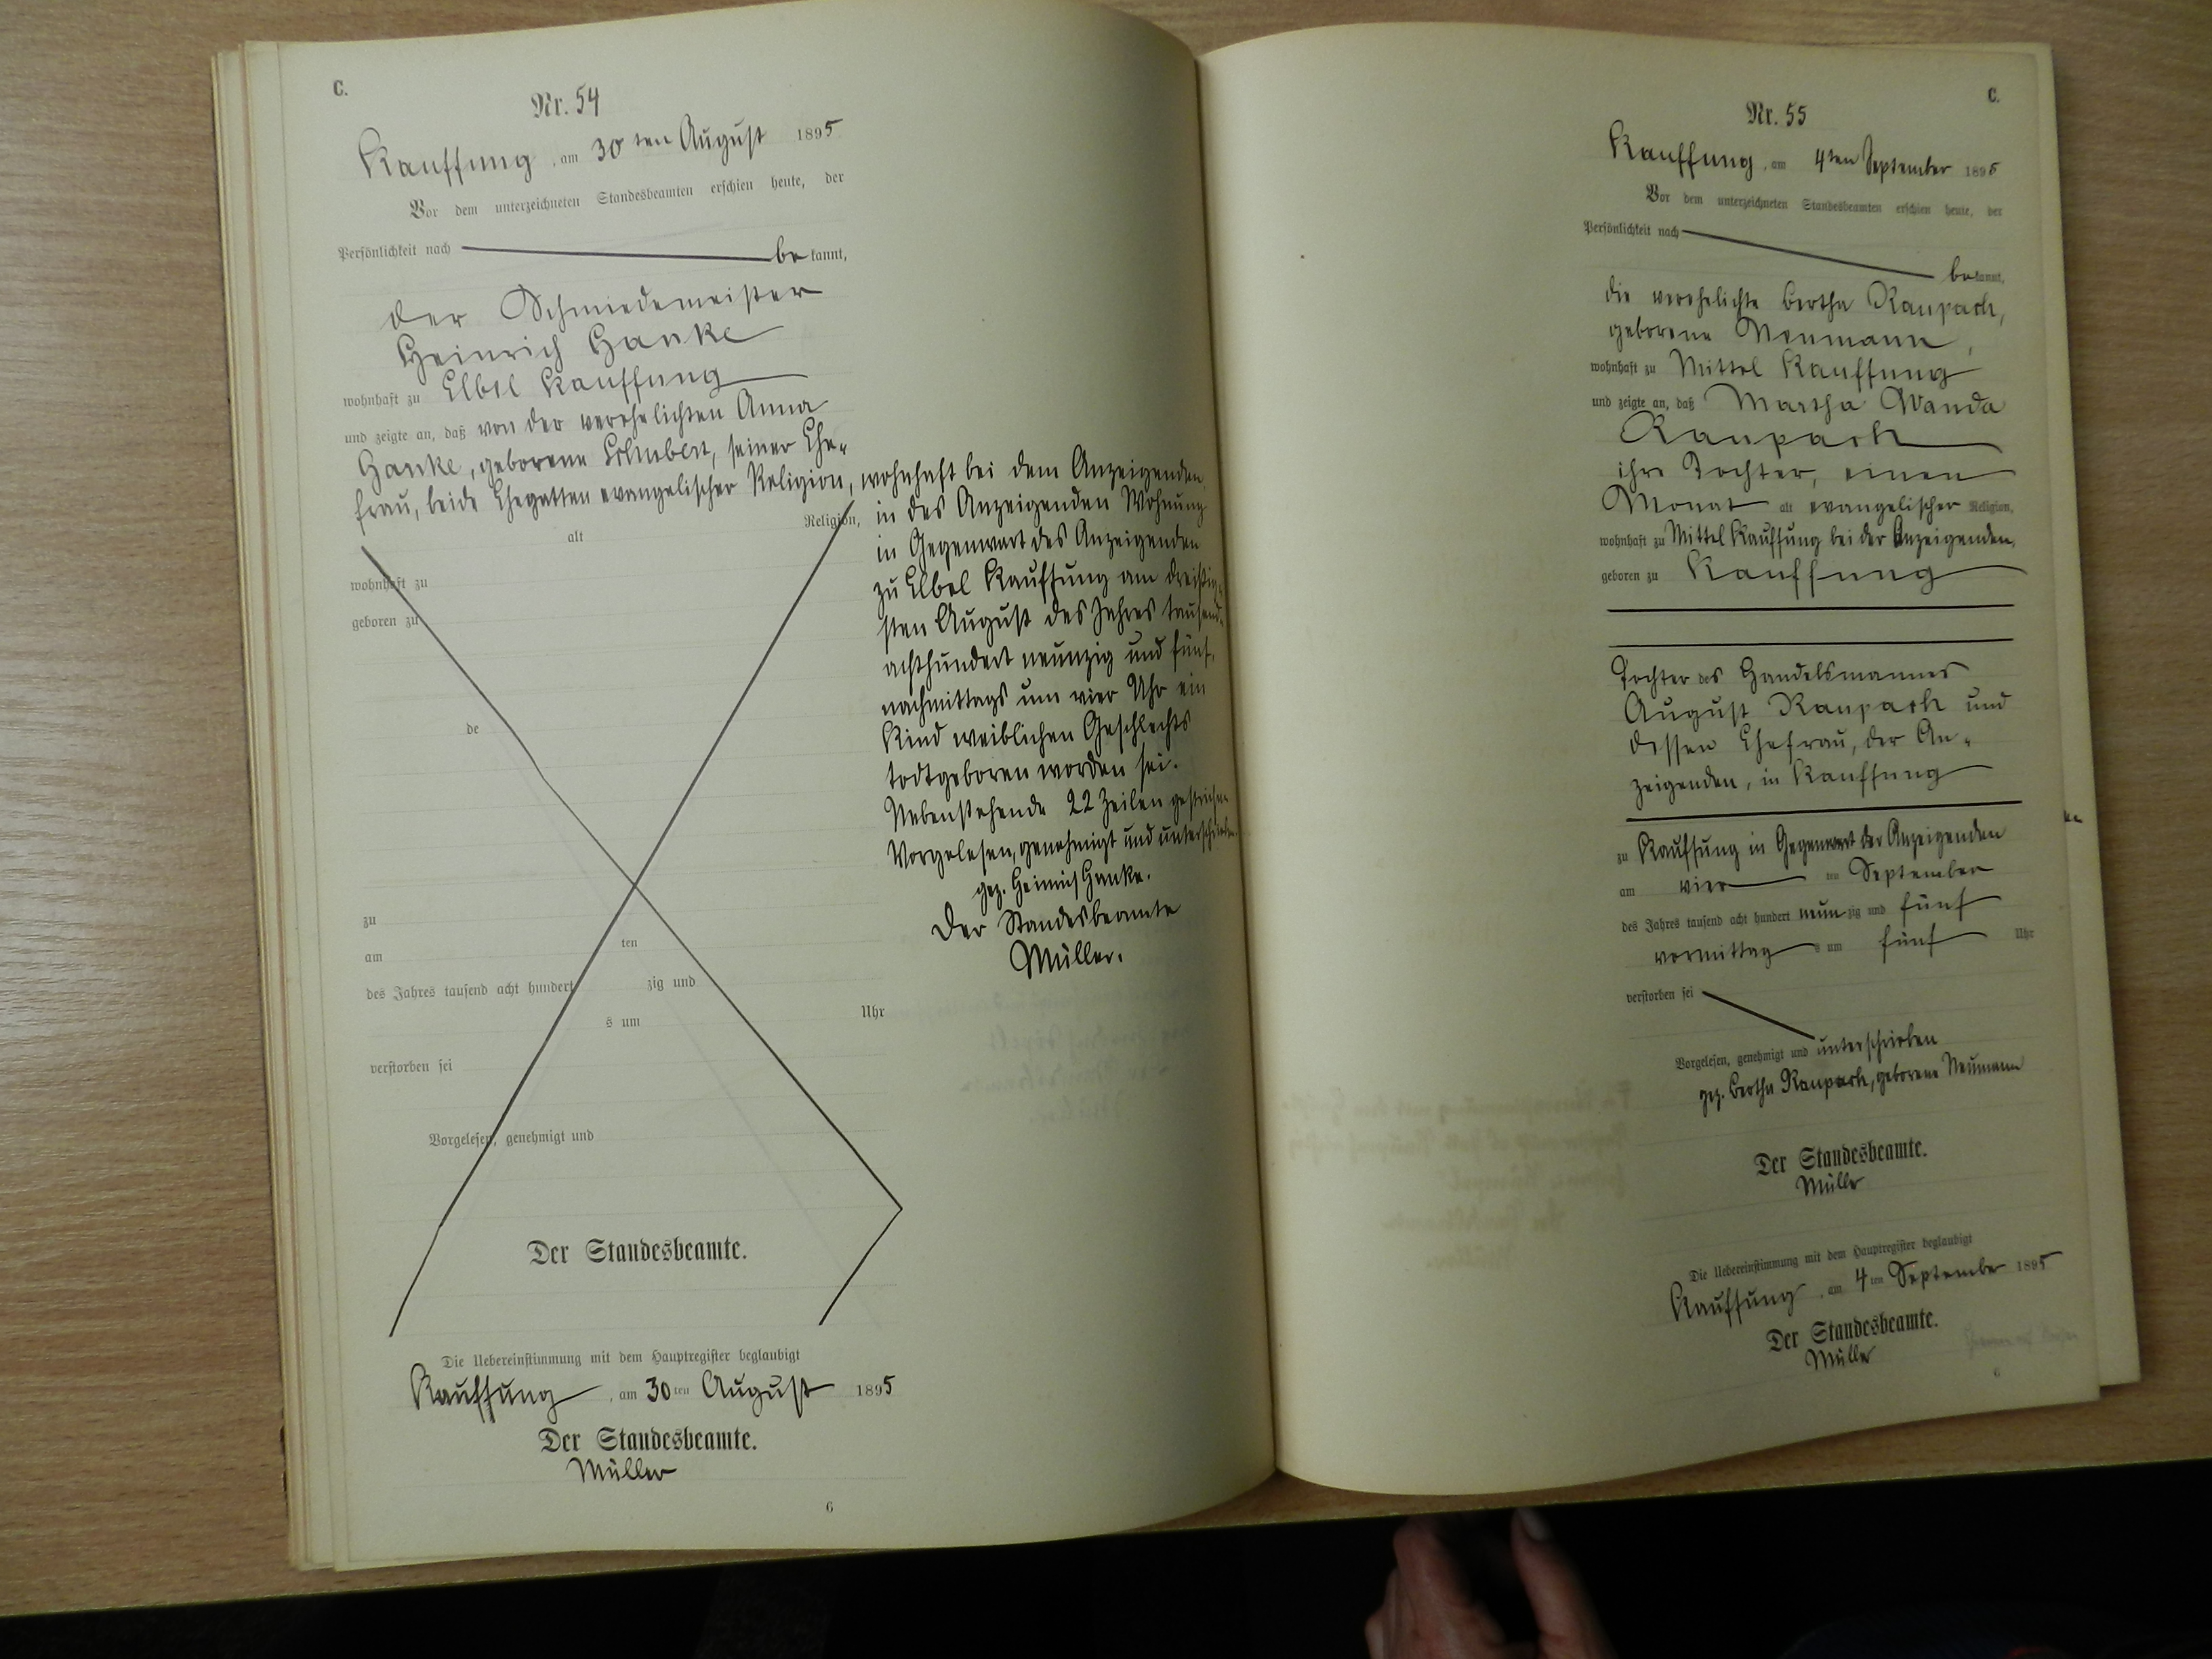 C.
Nr. 54
Kauffung, am 30ten August 1895
Vor dem unterzeichneten Standesbeamten erschien heute, der
Persönlichkeit nach bekannt,
der Schmiedemeister
Heinrich Hanke
wohnhaft zu Elbel Kauffung
und zeigte an, daß von der verehelichten Anna
Hanke, geborene seiner Ehe-
frau, beide Ehegatten evangelischer Religion, wohnhaft bei dem Anzeigenden
in des Anzeigenden Wohnung
in Gegenwart des Anzeigenden
zu Elbel Kauffung am dreißig-
sten August des Jahres tausend-
achthundert neunzig und fünf,
nachmittags um vier Uhr ein
Kind weiblichen Geschlechts
todtgeboren worden sei.
Nebenstehende 22 Zeilen gestrichen
Vorgelesen, genehmigt und unterschrieben
gez. Heinrich Hanke.
Der Standesbeamte
Müller.
alt Religion,
wohnhaft zu
geboren zu
de
zu
am ten
des Jahres tausend acht hundert zig und
s um Uhr
verstorben sei
Vorgelesen, genehmigt und
Der Standesbeamte.
Die Uebereinstimmung mit dem Hauptregister beglaubigt
Kauffung, am 30ten August 1895
Der Standesbeamte.
Müller
6
C.
Nr. 55
Kauffung, am 4ten September 1895
Vor dem unterzeichneten Standesbeamten erschien heute, der
Persönlichkeit nach bekannt,
die verehelichte Bertha Raupach,
geborene Neumann,
wohnhaft zu Mittel Kauffung
und zeigte an, daß Martha Wanda
Raupach
ihre Tochter, einen
Monat alt evangelischer Religion,
wohnhaft zu Mittel Kauffung bei der Anzeigenden,
geboren zu Kauffung
Tochter des Handelsmannes
August Raupach und
dessen Ehefrau, der An-
zeigenden, in Kauffung
zu Kauffung in Gegenwart der Anzeigenden
am vier ten September
des Jahres tausend acht hundert neunzig und fünf
vormittags um fünf Uhr
verstorben sei
Vorgelesen, genehmigt und unterschrieben
gez. Bertha Raupach, geborene Neumann
Der Standesbeamte.
Müller
Die Uebereinstimmung mit dem Hauptregister beglaubigt
Kauffung, am 4ten September 1895
Der Standesbeamte.
Müller
6